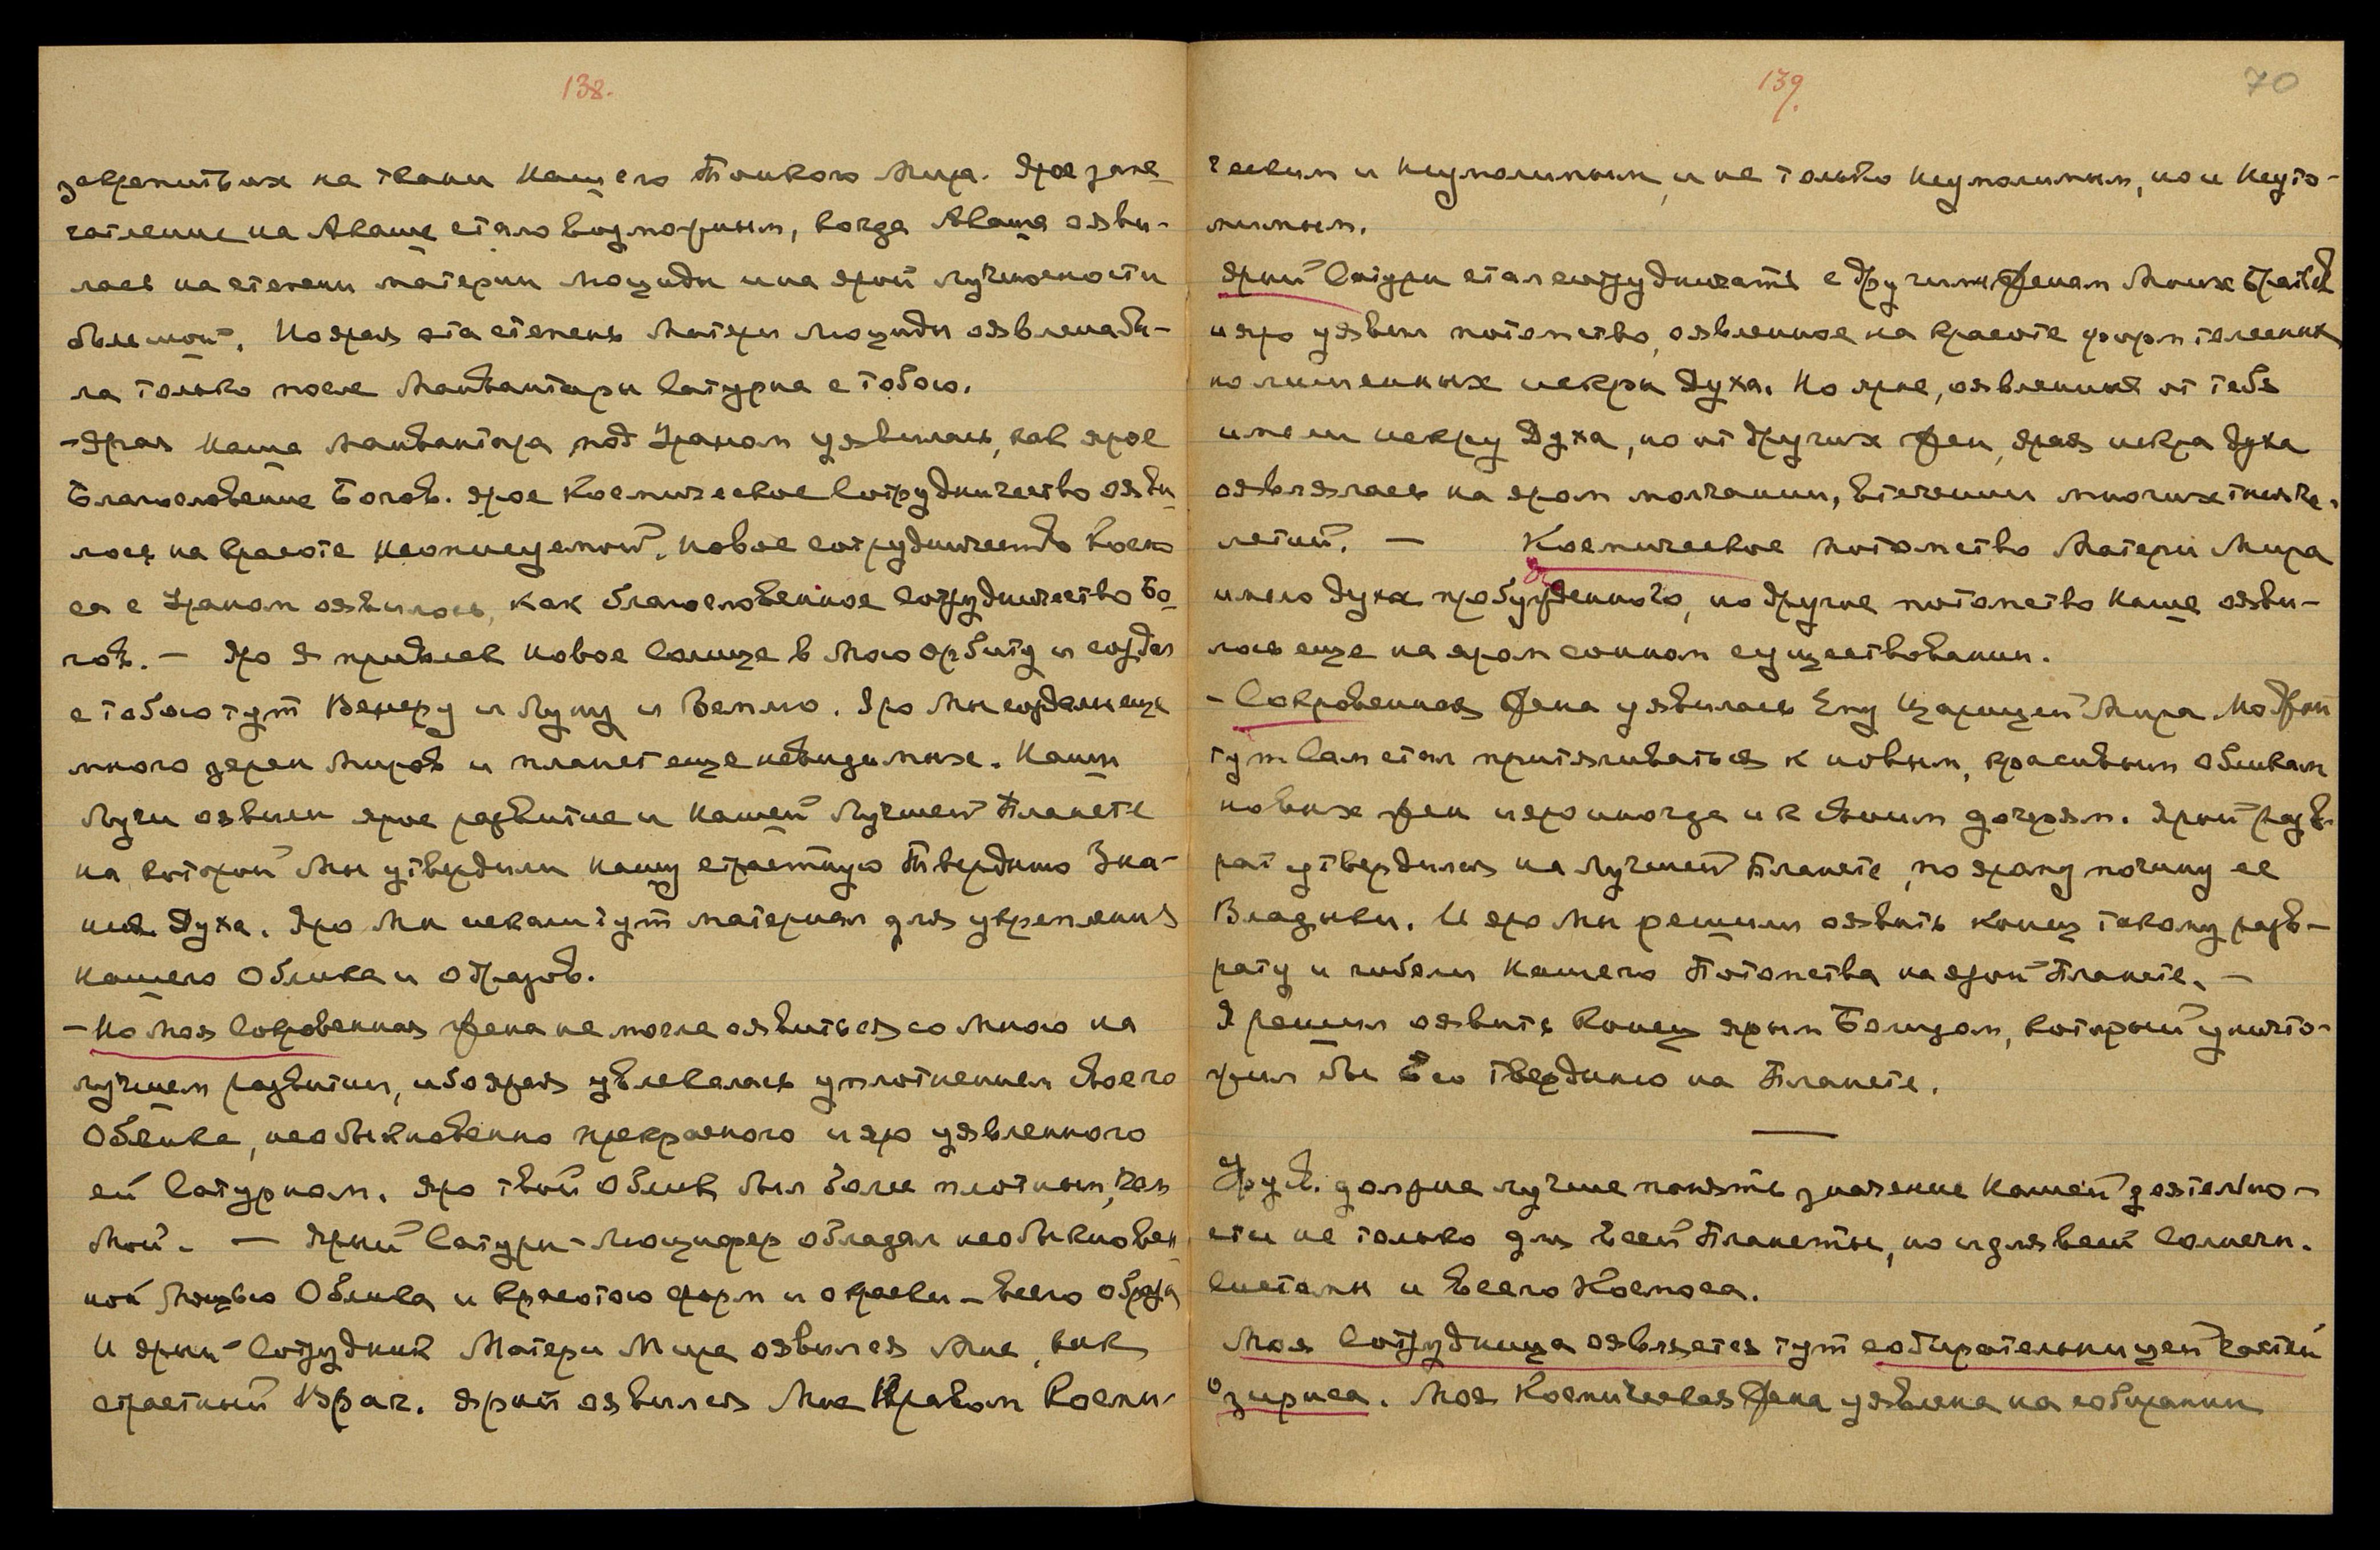 138.
закрепитьих на ткани Нашего Тонкого Мира. Ярое запе
чатление на Акаше стало возможным, когда Акашаояви-
лась на степени материи Люциды и на ярой лучшоности
Но ярая эта степень Матери Люциды оявлена бы-
ла только после Манвантары Сатурна с тобою.
- Ярая Наша Манвантара под Ураном уявилась, как ярое
Благословение Богов. Ярое Космическое Сотрудничество ояви
лось на красоте неописуемой. Новое сотрудничество Космо
са с Ураном оявилось, как благословенное сотрудничество Бо
гов. — Яро Я привлек Новое Солнце в Мою орбиту и создал
с тобою тут Венеру и Луну и Землю. Яро Мы создали еще
много зерен Миров и планет еще невидимых. Наши
Лучи оявили ярое развитие и Нашей Лучшей Планете
на которой Мы утвердили Нашу страстную Твердыню Зна-
ния Духа. Яро Мы искали тут материал для укрепления
Нашего Облика и Образов.
- Но Моя Сокровенная жена не могла оявиться со Мною на
лучшем развитии, ибо ярая увлекалась уплотнением своего
Облика, необыкновенно прекрасного и яро уявленного
ей Сатурном. Яро твой Облик был более плотным, чем
Мой. — Ярый Сатурн-Люцифер обладал необыкновен
ной Мощью Облика и красотою форм и окраски - всего образа
И ярый Сотрудник Матери Мира оявился Мне, как
страстный Враг. Ярый оявился Мне Врагом Косми-
139.
70
ческим и неумолимым, и не только неумолимым, но и неуто-
мимым.
Ярый Сатурн стал сотрудничать с другими женам Моих Братьев
и яро уявил потомство, оявленное на красоте форм телесных
но лишенных искры Духа. Но ярые, оявленные от тебя
имели искру Духа, но от других жен, ярая искра Духа
оявлялась на яром молчании, в течении многих тысяче-
летий. — Космическое потомство Матери Мира
имело Духа пробужденного, но другие потомство Наше ояви-
лось еще на яром сонном существовании.
- Сокровенная жена уявилась Ему Царицей Мира. Но Ярый
тут Сам стал притягиваться к новым, красивым Обликам
новых жен и яро иногда и к своим дочерям. Ярый разв-
рат утвердился на Лучшей Планете, по ярому почину ее
Владыки. И яро Мы решили оявить конец такому разв-
рату и гибели Нашего Потомства на ярой Планете. —
Я решил оявить Конец ярым Болидом, который уничто-
жил бы Его твердыню на Планете.
Друзья должны лучше понять значение Нашей деятельно-
сти не только для всей Планеты, но и для всей Солнечн.
Системы и всего Космоса.
Моя Сотрудница оявляется тут собирательницей частей
Озириса. Моя Космическая Жена уявлена на собирании